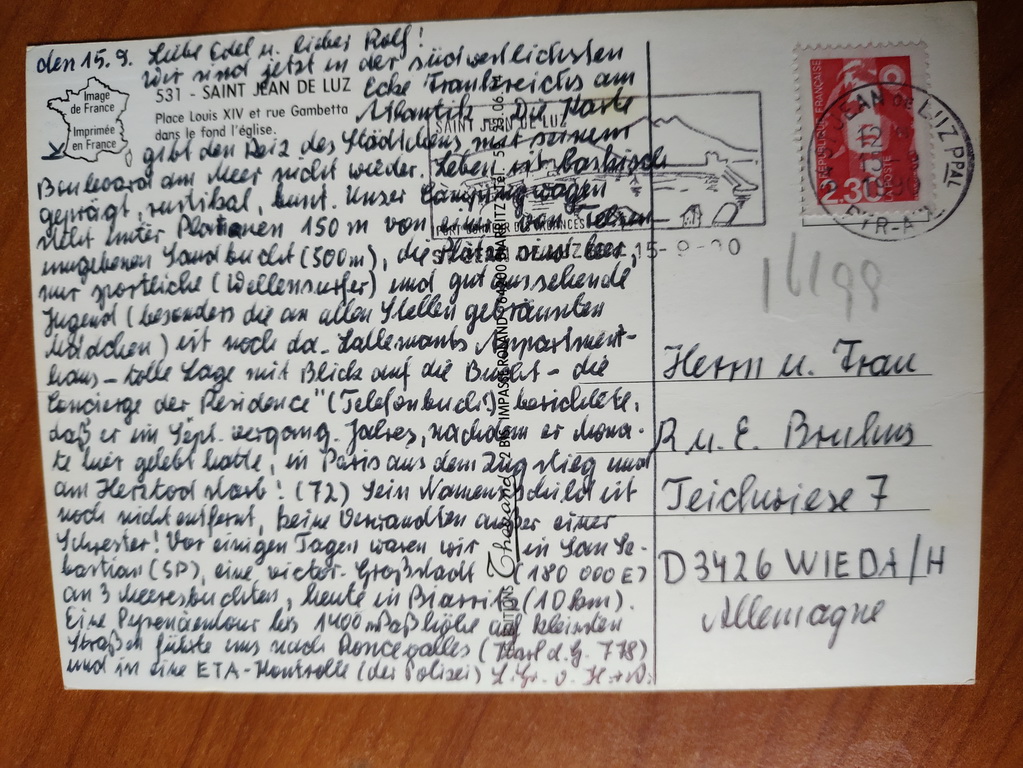 den 15.9. Liebe Edel u. lieber Rolf!
Wir sind jetzt in der südwestlichsten
Ecke Frankreichs am
Atlantik. Die Karte
gibt den Reiz des Städtchens mit seinem
Boulevard am Meer nicht wieder. Leben ist baskisch
geprägt, rustikal, bunt. Unser Campingwagen
steht unter Platanen 150 m von einer von Felsen
umgebenen Sandbucht (500m), die Plätze sind leer,
nur sportliche (Wellensurfer) und gut aussehende
Jugend (besonders die an allen Stellen gebräunten
Mädchen) ist noch da. Lallemants Appartment-
haus – tolle Lage mit Blick auf die Bucht – die
"Concierge der Residence" (Telefonbuch!) berichtete,
daß er im Sept. vergang. Jahres, nachdem er Mona-
te hier gelebt hatte, in Paris aus dem Zug stieg und
am Herztod starb! (72) Sein Namensschild ist
noch nicht entfernt, keine Verwandten außer einer
Schwester! Vor einigen Tagen waren wir in San Se-
bastian (SP), eine victor. Großstadt (180 000 E)
an 3 Meeresbuchten, heute in Biarritz (10 km).
Eine Pyrenäentour bis 1400 m Paßhöhe auf kleinsten
Straßen führte uns nach Roncevalles (Karl d. G. 778)
und in eine ETA-Kontrolle (der Polizei) L. Gr. v. H. + W.
Image
de France
Imprimée
en France
531 - SAINT JEAN DE LUZ
Place Louis XIV et rue Gambetta
dans le fond l'église.
EDITIONS Thouand 2 BIS, IMPASSE ROLAND 64200 BIARRITZ Tél. 59 06
SAINT JEAN DE LUZ
PORT DES VACANCES
15-9-90
RÉPUBLIQUE FRANÇAISE
2.30
POSTE
JEAN DE LUZ PPAL
PYR-A
16/99
Herrn u. Frau
R. u. E. Bruhns
Teichwiese 7
D 3426 WIEDA/H
Allemagne